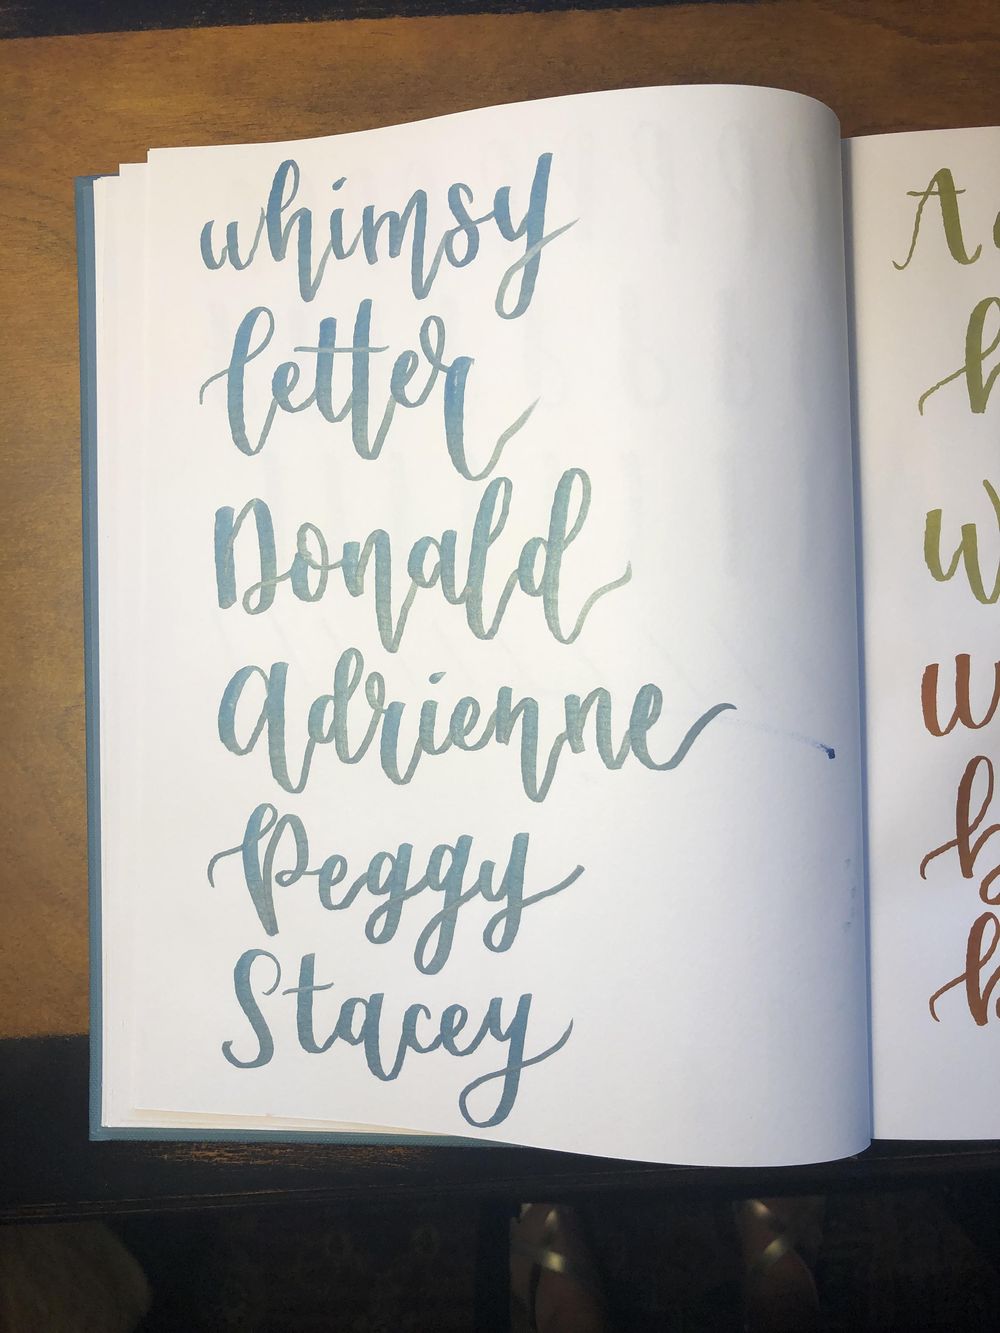 whimsy
letter
Donald
Adrienne
Peggy
Stacey